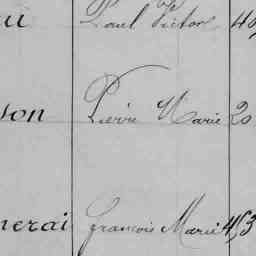 Paul Victor 40
son Pierre Marie 20
nerai François Marie 453